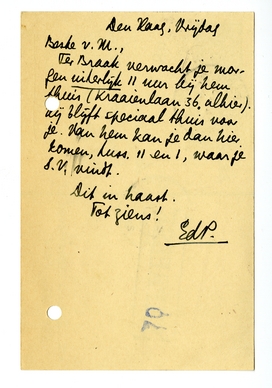 Den Haag, Vrijdag
Beste v. M.,
Ter Braak verwacht je mor-
gen uiterlijk 11 uur bij hem
thuis (Kraaienlaan 36, alhier).
Hij blijft speciaal thuis voor
je. Van hem kan je dan hier
komen, tuss. 11 en 1, waar je
S.V. vindt.
Dit in haast.
Tot ziens!
EdP.
70